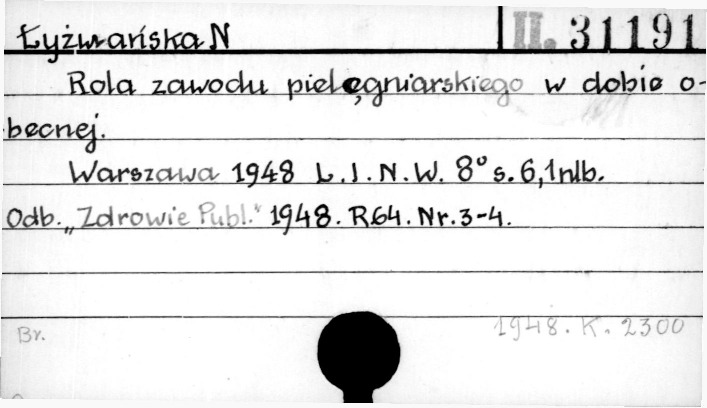 Łyżwańska N II. 31191
Rola zawodu pielęgniarskiego w dobie o-
becnej.
Warszawa 1948 L.I.N.W. 8° s. 6, 1 nlb.
Odb. „Zdrowie Publ." 1948. R.64. Nr. 3-4.
1948. K. 2300
Br.